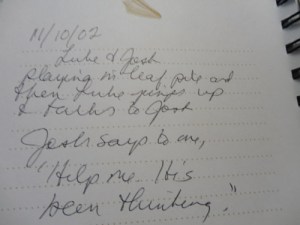 11/10/02
Luke & Josh
playing in leaf pile and
then Luke jumps up
& talks to Josh
Josh says to me,
"Help me. He's
been thinking."